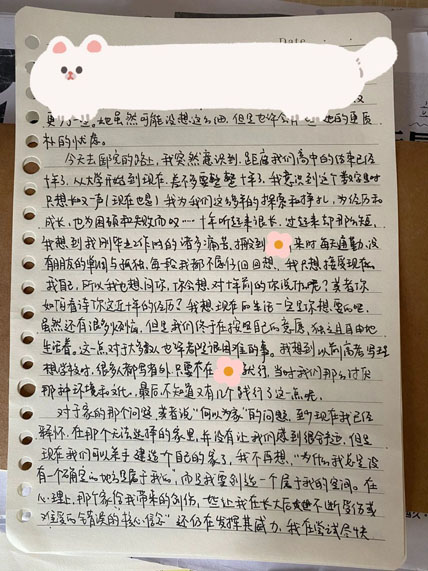 Date
更好一些。她虽然可能没想这么细,但是也许么 她的里质
朴的忧虑。
今天去图院的路上,我突然意识到,距离我们高中的结束已经
十年了,从大学开始到现在,差不多要整整十年了。我意识到这个数字时
只想大叹一声(现在也是)我为我们这多年的探索和挣扎,为经历和
成长,也为困顿和失败而叹……十年听起来很长,过起来却那么短。
我想到我刚毕业工作时的诸多痛苦,搬到 来时每天通勤,没
有朋友的单调与孤独,每一段我都不愿仔细回想。我只想接受现在的
我自己,所以我也想问你,你会想对十年前的你说什么呢?或者你
如何看待你这近十年的经历?我想现在的生活一定是你想要的吧,
虽然还有很多烦恼,但是我们终于在按照自己的意愿,独立且自由地
生活着。这一点对于大多数人也许都是很困难的事。我想到以前高考写理
想学校时,很多都写着外,只要不在 就行,当时我们那么讨厌
那种环境和文化,最后不知道又有几个践行了这一点呢。
对于家的那个问题,或者说"何以为家"的问题,到现在我已经
释怀,在那个无法选择的家里,并没有让我们感到很幸运,但是
现在我们可以亲手建造个自己的家了,我不再想,"为什么我总是没
有一个确定的地方是属于我的,而是我要创造一个属于我的空间。在
心理上,那个家给我带来的创伤,一些让我在长大后
难展的错误的核心信念,还仍在发挥其威力,我在尝试尽快